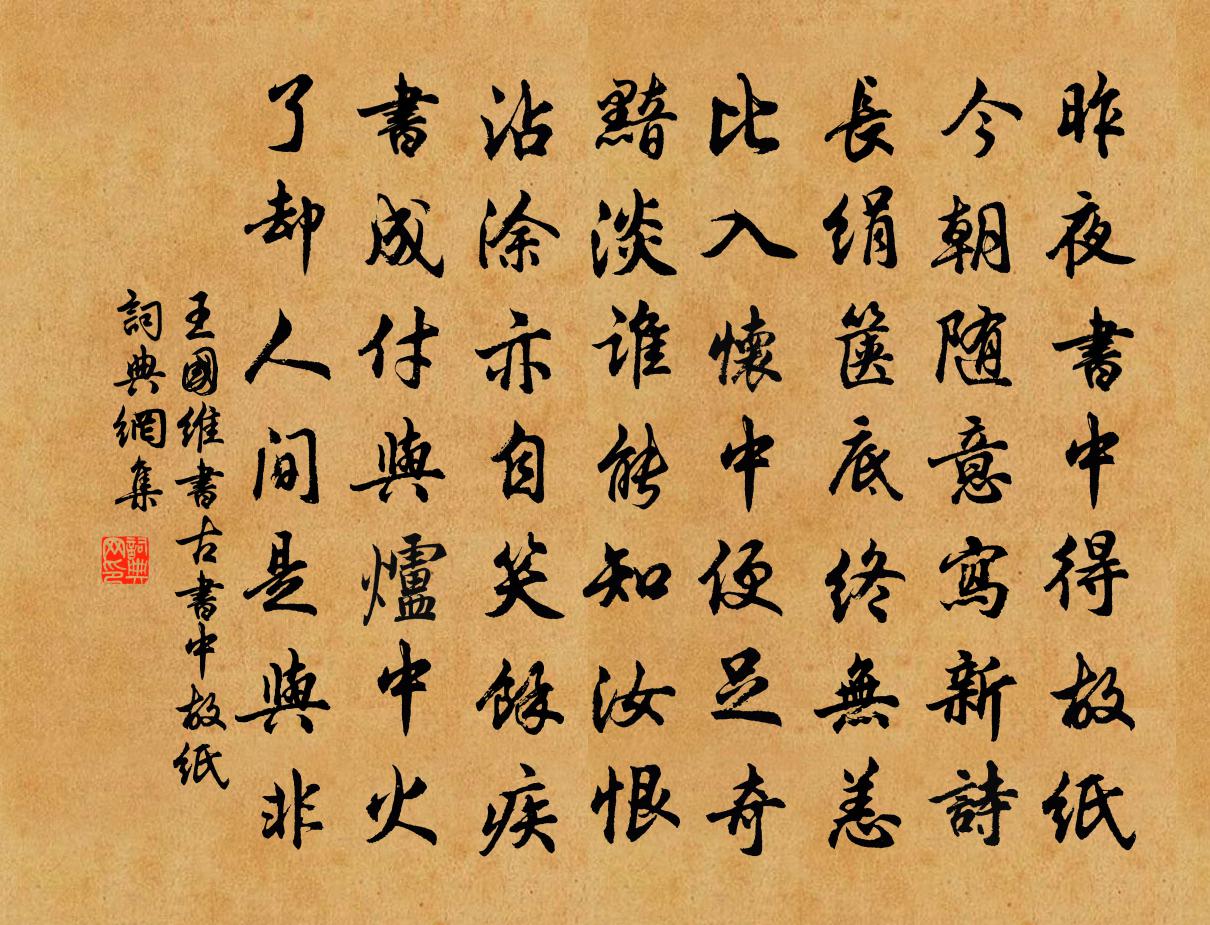 昨夜書中得故紙
今朝随意寫新詩
長絹篋底終無恙
比入懷中便足奇
黯淡誰能知汝恨
沾涂亦自笑餘疾
書成付與爐中火
了却人間是與非
王國維書古書中故紙
詞典網集
詞典网印